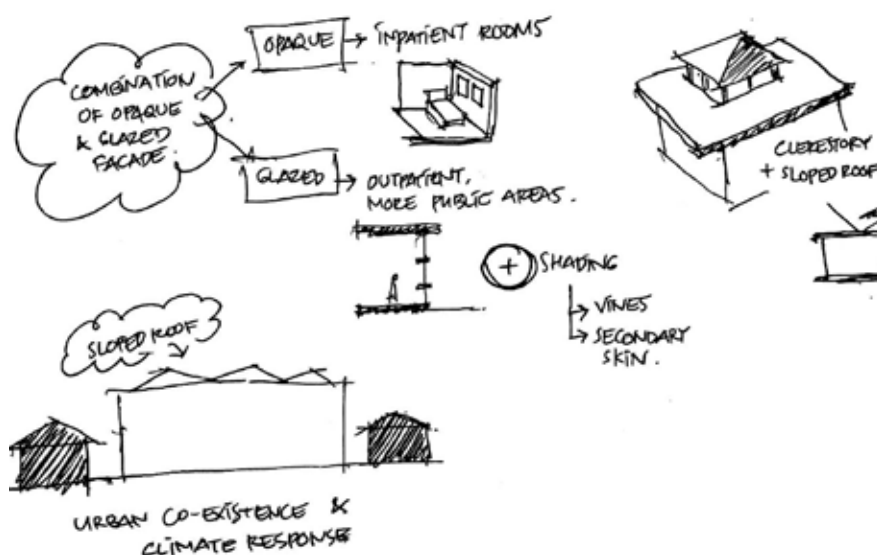 COMBINATION
OF OPAQUE
& GLAZED
FACADE.
OPAQUE
INPATIENT ROOMS
GLAZED
OUTPATIENT,
MORE PUBLIC AREAS.
+ SHADING
VINES
SECONDARY
SKIN.
CLERESTORY
+ SLOPED ROOF
SLOPED ROOF
URBAN CO-EXISTENCE &
CLIMATE RESPONSE